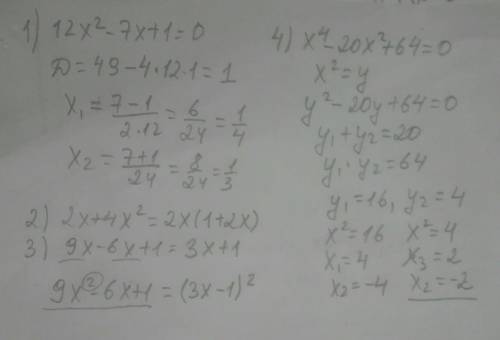 1) 12x² - 7x + 1 = 0
Д = 49 - 4·12·1 = 1
x₁ = (7-1)/(2·12) = 6/24 = 1/4
x₂ = (7+1)/24 = 8/24 = 1/3
2) 2x + 4x² = 2x(1+2x)
3) 9x - 6x + 1 = 3x + 1
9x² - 6x + 1 = (3x - 1)²
4) x⁴ - 20x² + 64 = 0
x² = y
y² - 20y + 64 = 0
y₁ + y₂ = 20
y₁ · y₂ = 64
y₁ = 16, y₂ = 4
x² = 16 x² = 4
x₁ = 4 x₃ = 2
x₂ = -4 x₂ = -2